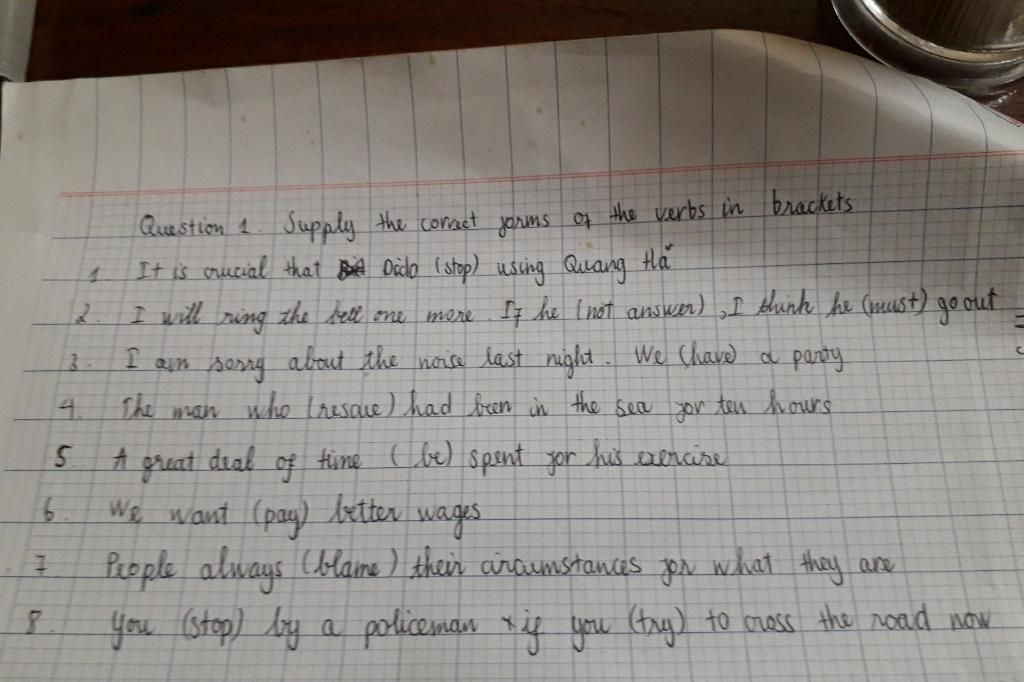 Question 1. Supply the correct forms of the verbs in brackets
1 It is crucial that Dido (stop) using Quang Hà
2. I will ring the bell one more. If he (not answer), I think he (must) go out
3. I am sorry about the noise last night. We (have) a party
4. The man who (rescue) had been in the sea for ten hours
5 A great deal of time (be) spent for his exercise
6. We want (pay) better wages
7 People always (blame) their circumstances for what they are
8. You (stop) by a policeman if you (try) to cross the road now